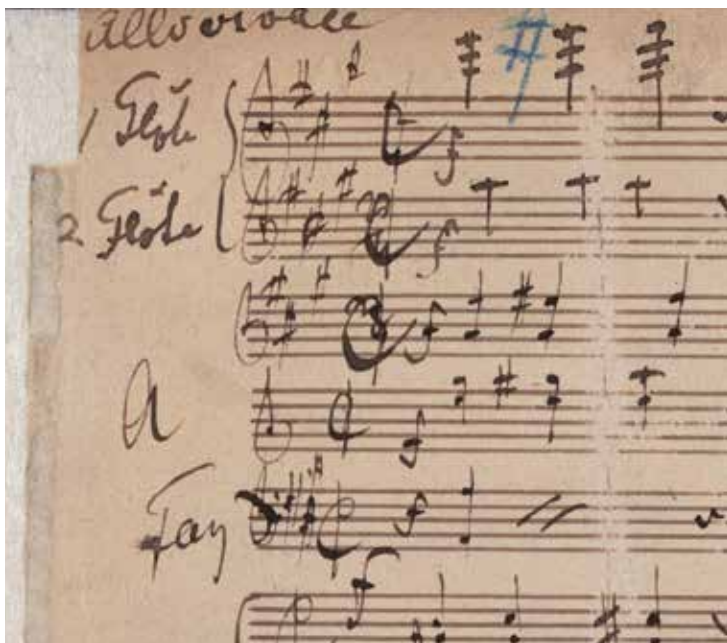 Allo vivace
1 Flöte f
2. Flöte f
f
A f
Fag f
f